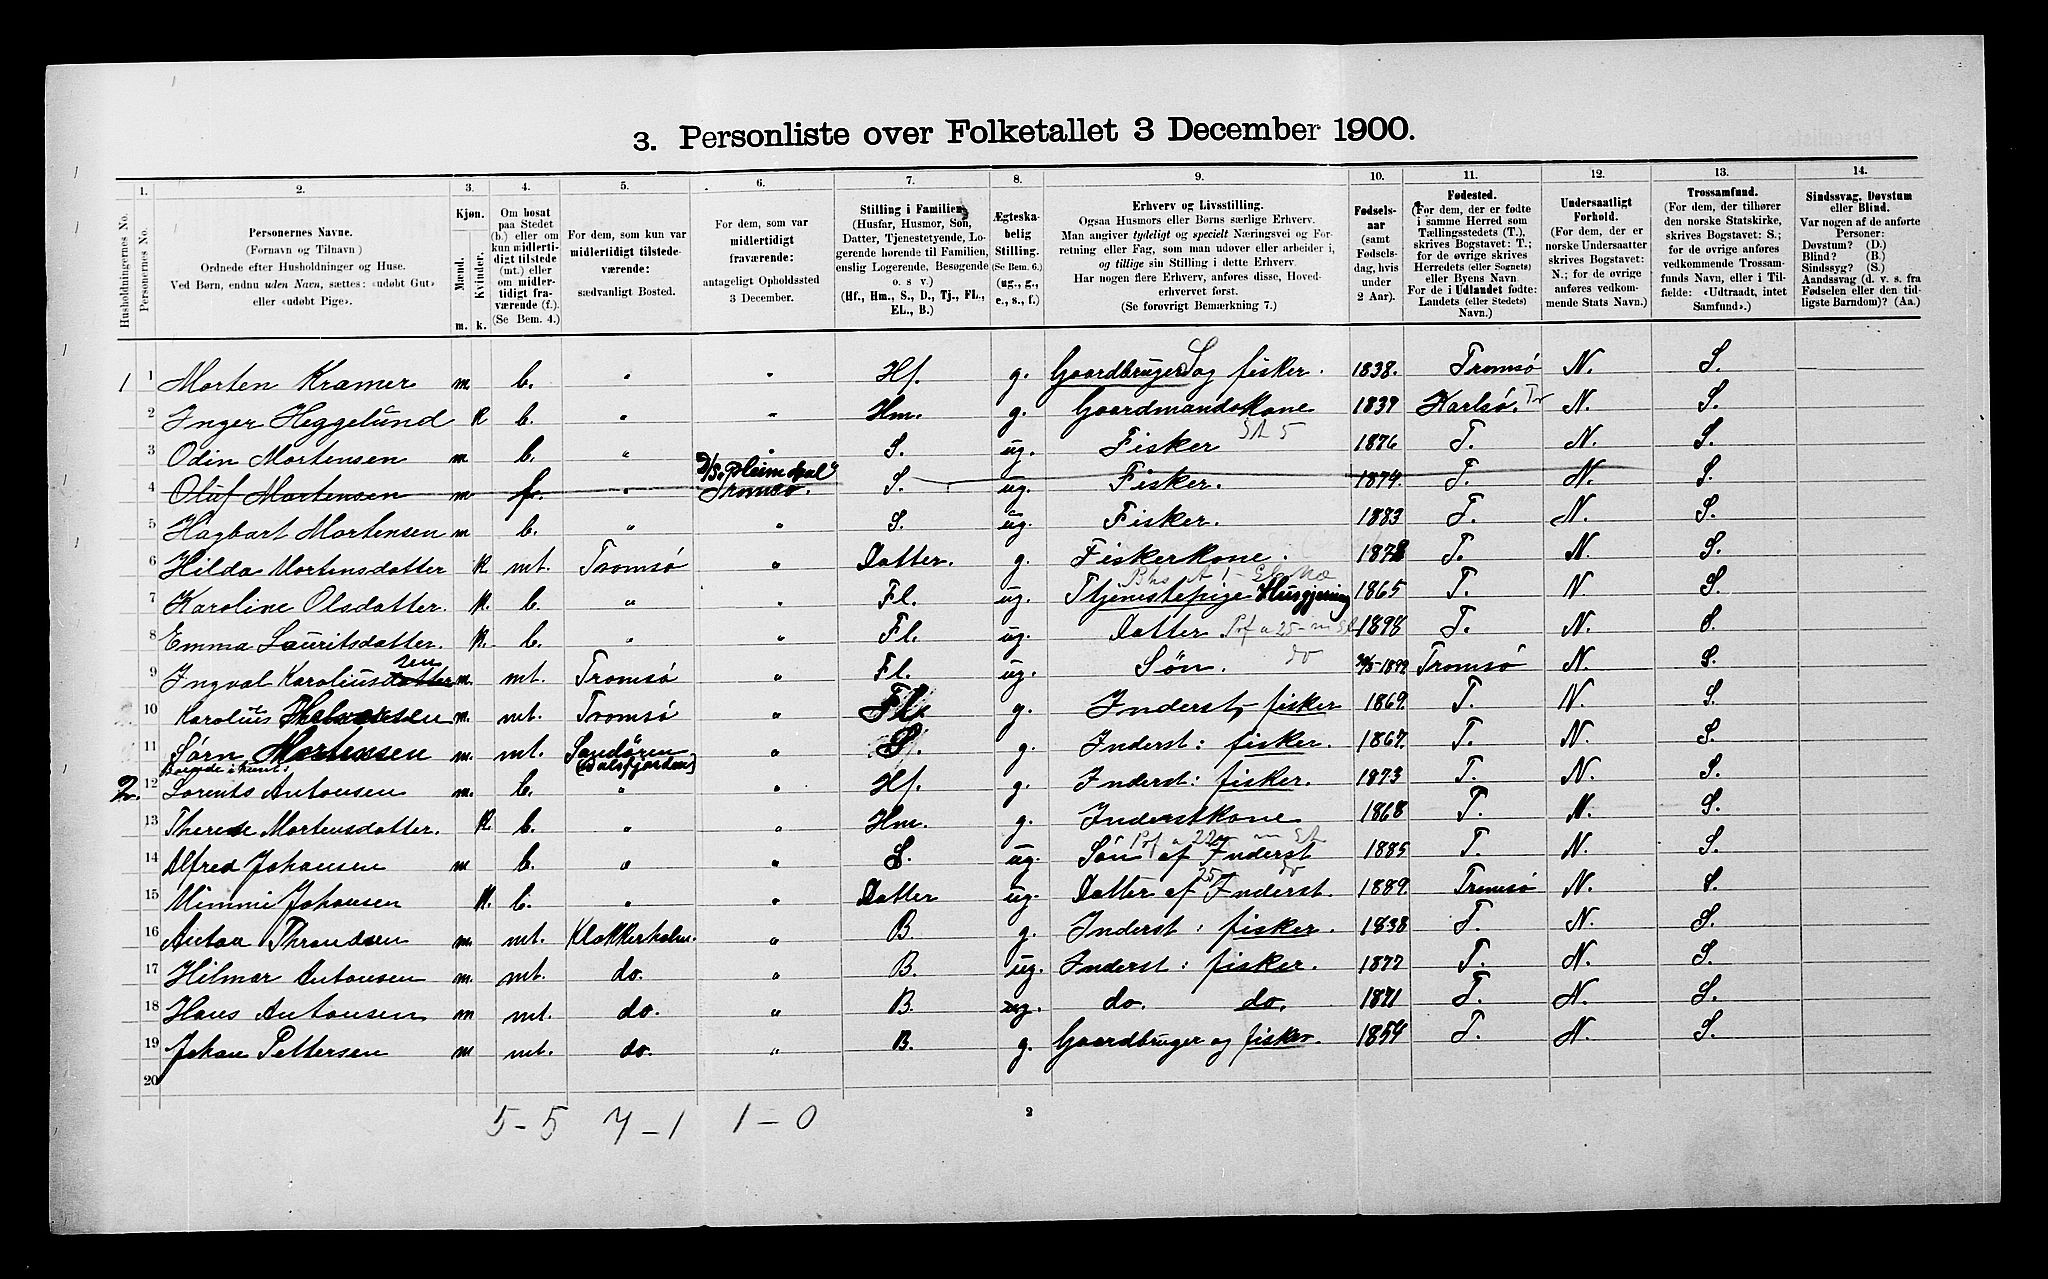 3. Personliste over Folketallet 3 December 1900.
1. 2. 3. 4. 5. 6. 7. 8. 9. 10. 11. 12. 13. 14.
Husholdningernes No.
Personernes No.
Personernes Navne.
(Fornavn og Tilnavn)
Ordnede efter Husholdninger og Huse.
Ved Børn, endnu uden Navn, sættes: «udøbt Gut»
eller «udøbt Pige».
Kjøn.
Mænd.
Kvinder.
m. k.
Om bosat
paa Stedet
(b.) eller om
kun midlerti-
digt tilstede
(mt.) eller
om midler-
tidigt fra-
værende (f.).
(Se Bem. 4.)
For dem, som kun var
midlertidigt tilstede-
værende:
sædvanligt Bosted.
For dem, som var
midlertidigt
fraværende:
antageligt Opholdssted
3 December.
Stilling i Familien.
(Husfar, Husmor, Søn,
Datter, Tjenestetyende, Lo-
gerende hørende til Familien,
enslig Logerende, Besøgende
o. s v.)
(Hf., Hm., S., D., Tj., FL.,
EL., B.)
Ægteska-
belig
Stilling.
(Se Bem. 6.)
(ug., g.,
e., s., f.)
Erhverv og Livsstilling.
Ogsaa Husmors eller Børns særlige Erhverv.
Man angiver tydeligt og specielt Næringsvei og For-
retning eller Fag, som man udøver eller arbeider i,
og tillige sin Stilling i dette Erhverv.
Har nogen flere Erhverv, anføres disse, Hoved-
erhvervet først.
(Se forøvrigt Bemærkning 7.)
Fødsels-
aar
(samt
Fødsels-
dag, hvis
under
2 Aar).
Fødested.
(For dem, der er fødte
i samme Herred som
Tællingsstedets (T.),
skrives Bogstavet: T.;
for de øvrige skrives
Herredets (eller Sognets)
eller Byens Navn
For de i Udlandet fødte:
Landets (eller Stedets)
Navn.)
Undersaatligt
Forhold.
(For dem, der er
norske Undersaatter
skrives Bogstavet:
N.; for de øvrige
anføres vedkom-
mende Stats Navn.)
Trossamfund.
(For dem, der tilhører
den norske Statskirke,
skrives Bogstavet: S.;
for de øvrige anføres
vedkommende Trossam-
funds Navn, eller i Til-
fælde: «Udtraadt, intet
Samfund».)
Sindssvag, Døvstum
eller Blind.
Var nogen af de anførte
Personer:
Døvstum? (D.)
Blind? (B.)
Sindssyg? (S.)
Aandssvag (d. v. s. fra
Fødselen eller den tid-
ligste Barndom)? (Aa.)
1 1 Morten Kramer m. b. " " Hf. g. Gaardbruger og fisker. 1838. Tromsø N. S.
2 Inger Heggelund k b. " " Hm. g. Gaardmandskone 1839 Karlsø. N. S.
3 Odin Mortensen m b. " " S. ug. Fisker 1876 T. N. S.
4 Oluf Mortensen m f. " Tromsø. S. ug. Fisker. 1879 T. N. S.
5 Hagbart Mortensen m b. " " S. ug. Fisker. 1883 T. N. S.
6 Hilda Mortensdatter k. mt. Tromsø " Datter. g. Fiskerkone. 1878 T. N. S.
7 Karoline Olsdatter. k. b. " " Fl. ug. Tjenestepige Husgjerning 1865 T. N. S.
8 Emma Lauritsdatter. k. b. " " Fl. ug. Datter 1898 T. N. S.
do
9 Ingval Karoliussen m. mt. Tromsø " Fl. ug. Søn. 1899 Tromsø N. S.
10 Karolius m. mt. Tromsø " Fl. g. Inderst, fisker 1869. T. N. S.
11 Sørn Mortensen m. mt. Sandøren (Balsfjorden) " S. g. Inderst: fisker. 1867. T. N. S.
2. 12 Lorents Antonsen m. b. " " Hf. g. Inderst: fisker. 1873 T. N. S.
13 Therese Mortensdatter. k. b. " " Hm. g. Inderstkone 1868 T. N. S.
14 Alfred Johansen m b. " " S. ug. Søn af Inderst 1885 T. N. S.
15 Mimmi Johansen k. b. " " Datter ug. Datter af Inderst. 1889. Tromsø N. S.
16 Anton Throndsen m. mt. Klokkerholm. " B. g. Inderst: fisker. 1838 T. N. S.
17 Hilmar Antonsen m. mt. do. " B. ug. Inderst: fisker. 1877 T. N. S.
18 Hans Antonsen m mt. do. " B. ug. do. do. 1871 T. N. S.
19 Johan Pettersen m mt. do. " B. g. Gaardbruger og fisker. 1854 T. N. S.
20
5-5 7-1 1-0 2